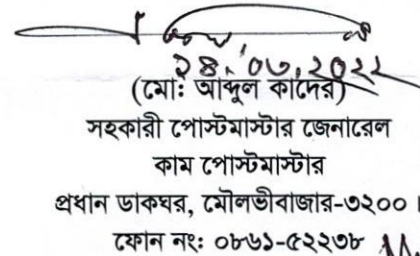 ২৪.০৭.২০২২
(মো: আব্দুল কাদের)
সহকারী পোস্টমাস্টার জেনারেল
কাম পোস্টমাস্টার
প্রধান ডাকঘর, মৌলভীবাজার-৩২০০।
ফোন নং: ০৮৬১-৫২২৩৮